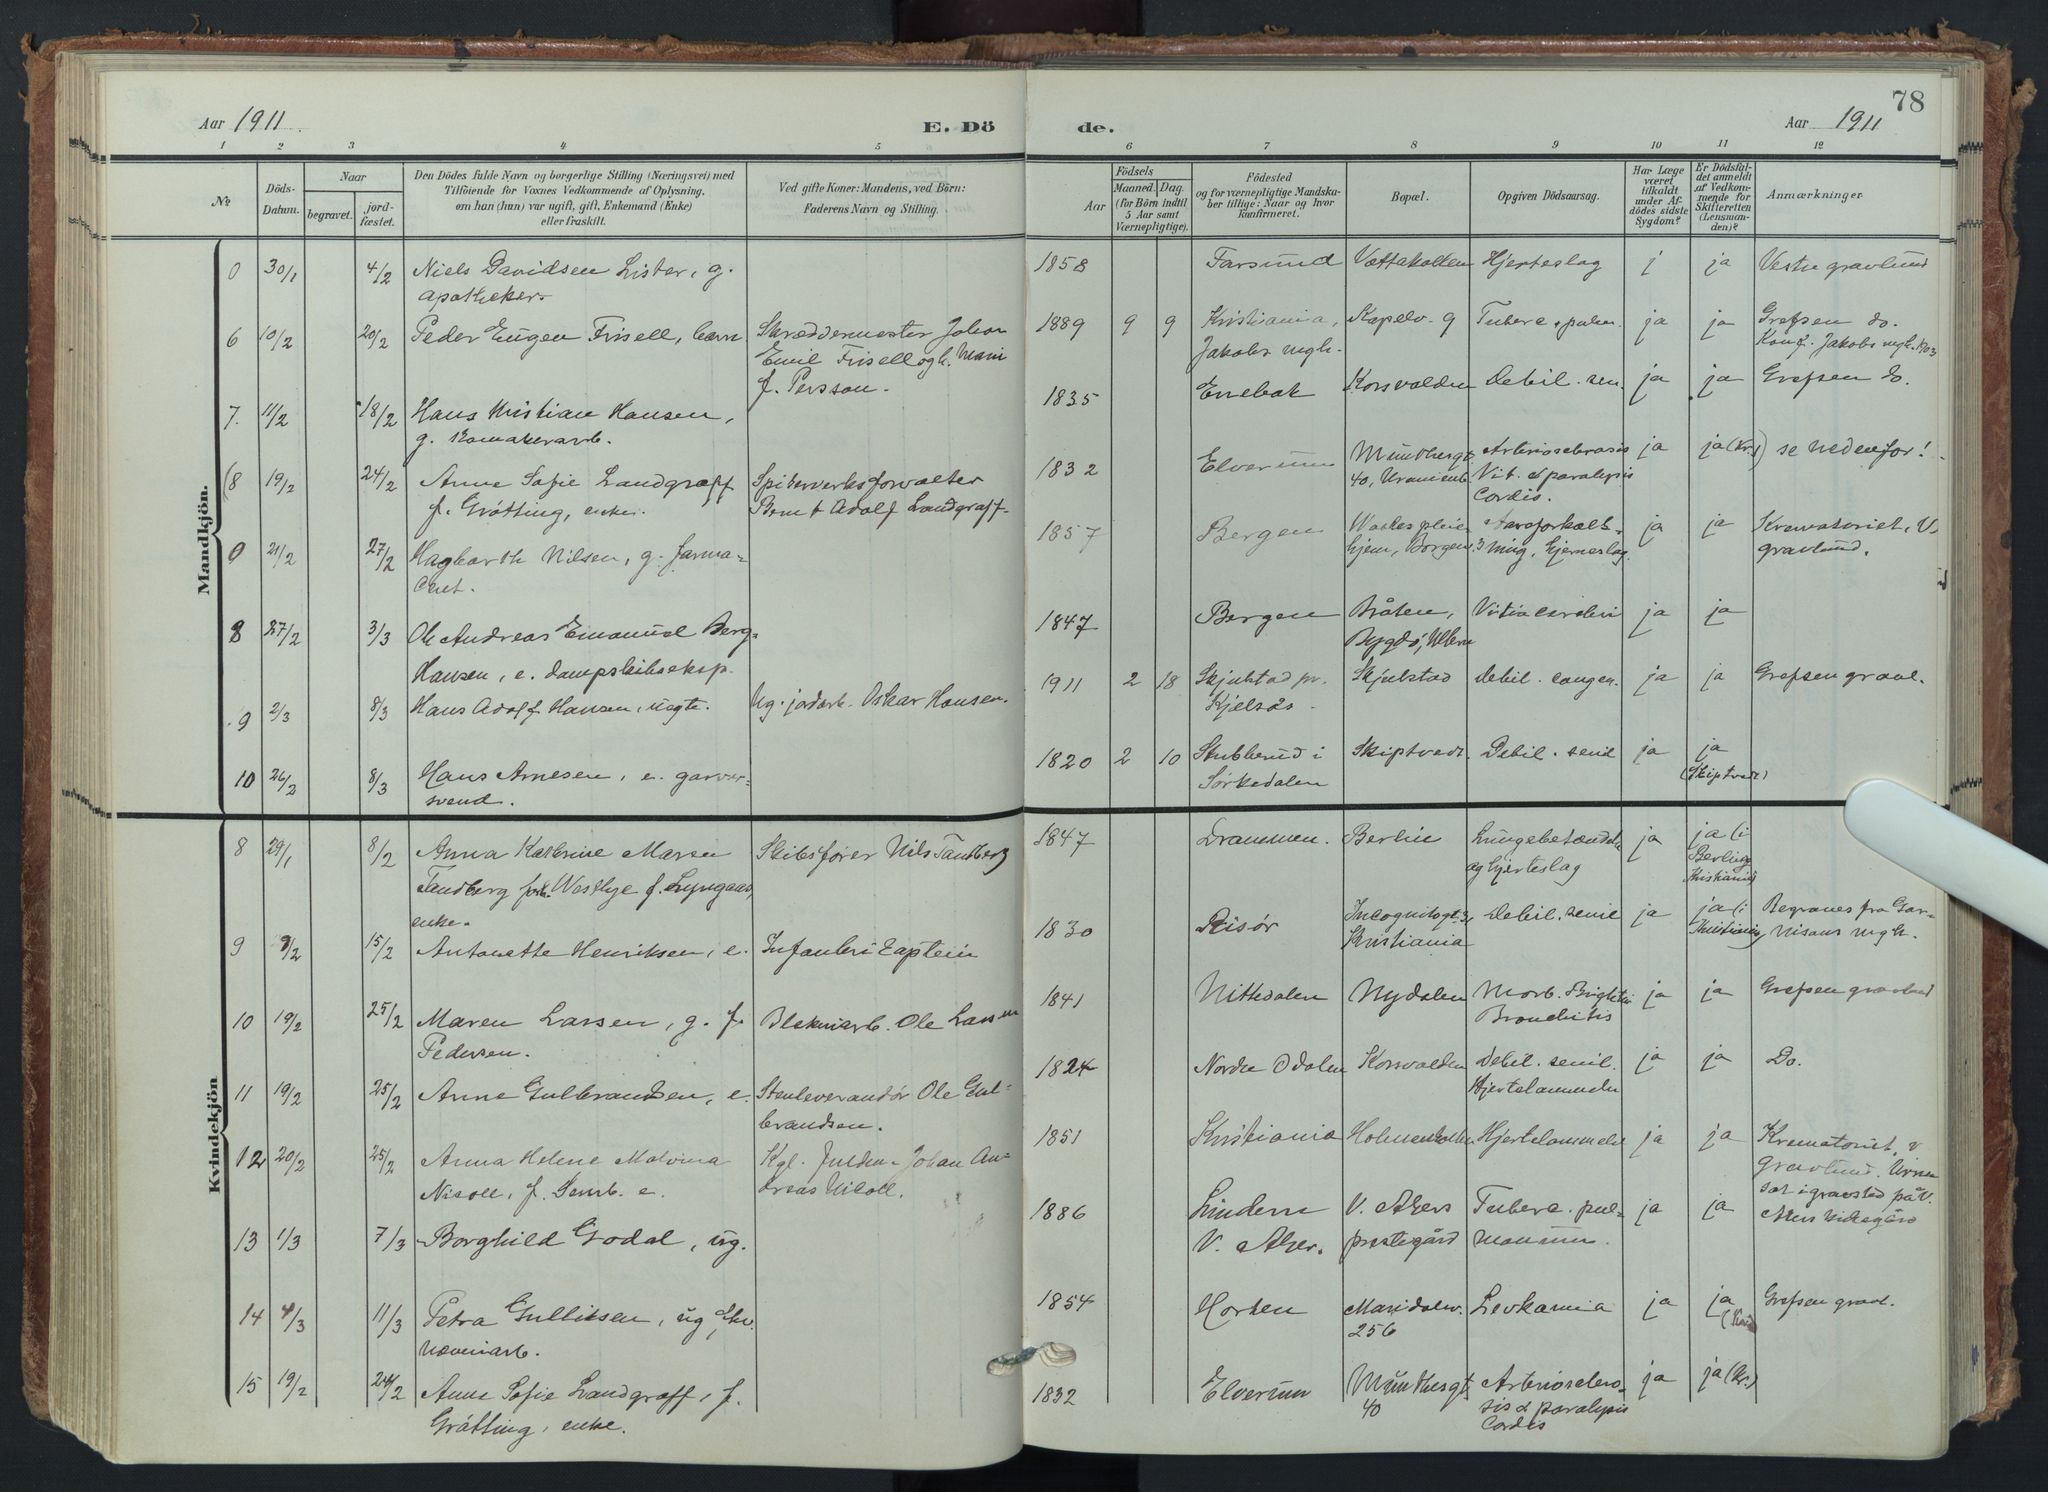 78
Aar 1911
E. Dö
de.
Aar 1911
1 2 3 4 5 6 7 8 9 10 11 12
No
Döds-
Datum.
Naar
begravet.
jord-
fæstet.
Den Dödes fulde Navn og borgerlige Stilling (Næringsvei) med
Tilföiende for Voxnes Vedkommende af Oplysning,
om han (hun) var ugift, gift, Enkemand (Enke)
eller fraskilt.
Ved gifte Koner: Mandens, ved Börn:
Faderens Navn og Stilling.
Födsels
Aar
Maaned. Dag.
(for Börn indtil
5 Aar samt
Værnepligtige).
Födested
og for værnepligtige Mandska-
ber tillige: Naar og hvor
konfirmeret.
Bopæl.
Opgiven Dödsaarsag.
Har Læge
været
tilkaldt
under Af-
dödes sidste
Sygdom?
Er Dödsfal-
det anmeldt
af Vedkom-
mende for
Skifteretten
(Lensman-
den)?
Anmærkninger
Mandkjön.
0 30/1 4/2 Niels Davidsen Lister, g. 1858 Farsund Vættakollen Hjerteslag j ja Vestre gravlund
apotheker
6 10/2 20/2 Peder Eugen Frisell, barn Skræddermester Johan 1889 9 9 Kristiania, Kapelv. 9 Tuberc. pulm. ja ja Grefsen do.
Emil Frisell og h. Jakobs mgh. Konf. Jakobs mgh. 1903
f. Persson.
7. 11/2 18/2 Hans Kristian Hansen, 1835 Enebak Korsvolden Debil. sen. ja ja Grefsen do.
g.
(8 19/2 24/2 Anne Sofie Landgraff Spigerverksforvalter 1832 Elverum Munthesgt. ja ja (Kr.) se nedenfor!
f. Gråtting, enke. Bernt Adolf Landgraff. 40, Uranienb. Vit. & paralysis
Cordis.
0 21/2 27/2 Hagbarth Nilsen, g. farma- 1857 Bergen pleie- Aareforkalk- ja ja Krematoriet, V.
ceut. hjem, Borgenv. 3 ning, hjerneslag gravlund.
8 27/2 3/3 Ole Andreas Emanuel Berg- 1847 Bergen Bråten, Vitia cordis ja ja
Hansen, e. dampskibseksp. Bygdö, Ullern
9 2/3 8/3 Hans Adolf Hansen, uegte. Ug. jordarb. Oskar Hansen. 1911 2 18 Skjulstad pr. Skjulstad Debil. congen. ja ja Grefsen gravl.
Kjelsås
10 26/2 8/3 Hans Arnesen, e. garver- 1820 2 10 Stubberud i Skiptvedt Debil. senil ja ja
svend. Sørkedalen (Skiptvedt)
Kvindekjön
8 29/1 8/2 Anna Kathrine Maren Skibsfører Nils Tandberg 1847 Drammen. Berlin Lungebetændelse ja ja (i
Tandberg forh. Westbye f. Lyngaas, og hjerteslag Berlin og
enke. Kristiania)
9 9/2 15/2 Antonette Henriksen, e. Infanterikaptein 1830 Risør Incognitogt. Debil. senil ja ja (i Begraves fra Gar-
Kristiania Kristiania) nisons mgh.
10 19/2 25/2 Maren Larsen, g. f. Blekeriarb. Ole Larsen 1841 Nittedalen Nydalen Morb. Brightii ja ja Grefsen gravlund
Pedersen. Bronchitis
11 19/2 25/2 Anne Gulbrandsen, e. Stenleverandør Ole Gul- 1824 Nordre Odalen Korsvolden Debil. senil. ja ja Do.
brandsen. Hjertelammelse
12 20/2 25/2 Anna Helene Malvina Kgl. fuldm. Johan An- 1851 Kristiania Holmenkollen Hjertelammelse ja ja Krematoriet, V.
Nisoll, f. Semb. e. dreas Nisoll. gravlund. Urnen
sat i gravsted på V.
Akers kirkegård
13 1/3 7/3 Borghild Godal, ug. 1886 Lindern V. Akers Tuberc. pul- ja ja
V. Aker. prestegård monum.
14 4/3 11/3 Petra Gulliksen, ug. 1854 Horten Maridalsv. Levkæmia ja ja Grefsen gravl.
256
15 19/2 24/2 Anne Sofie Landgraff, f. 1832 Elverum Munthesgt. Arterioscelero- ja ja (Kr.)
Gråtting, enke. 40 sis & paralysis
Cordis